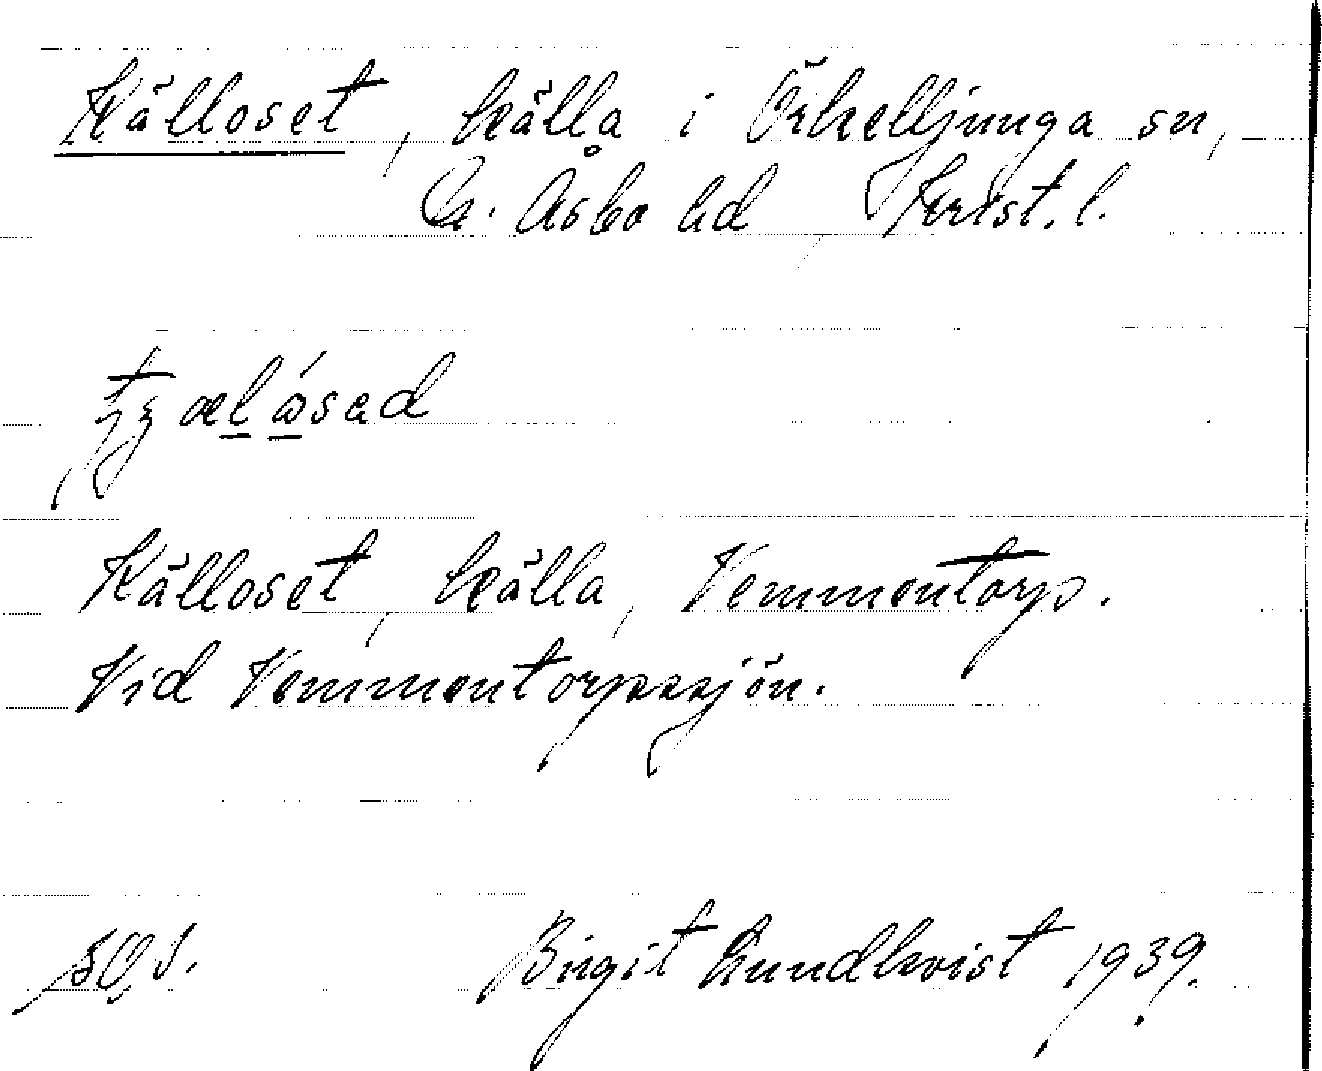 Källoset, källa i Örkelljunga sn,
N. Åsbo hd, Krist. l.
Källoset, källa, Vemmentorp.
Vid Vemmentorpssjön.
Birgit Lundkvist 1939.